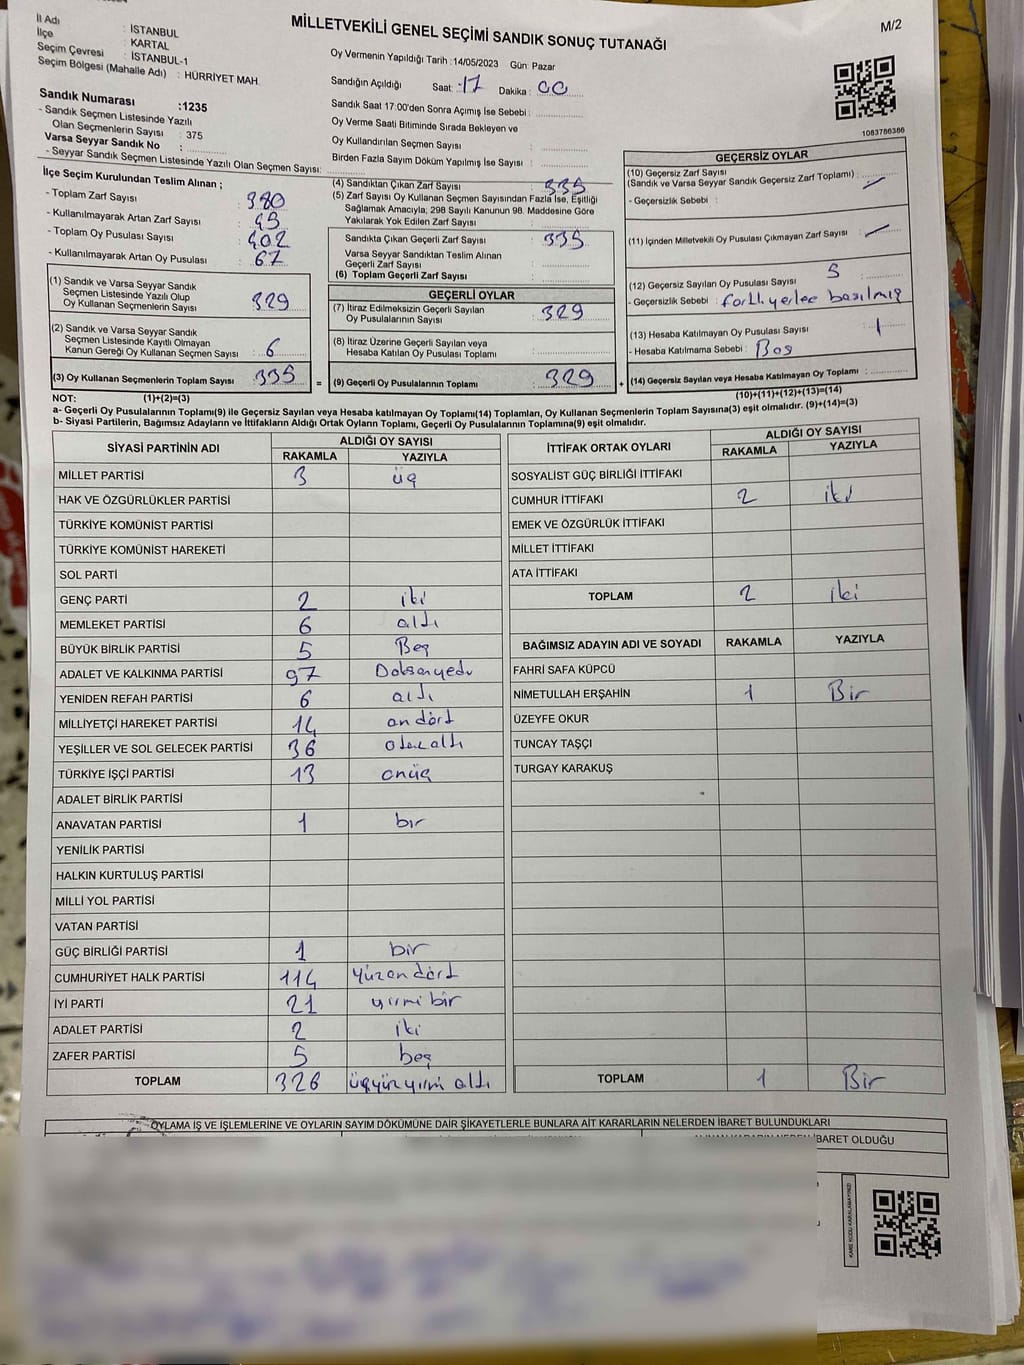 MİLLETVEKİLİ GENEL SEÇİMİ SANDIK SONUÇ TUTANAĞI
M/2
İl Adı : İSTANBUL
İlçe : KARTAL
Seçim Çevresi : İSTANBUL-1
Seçim Bölgesi (Mahalle Adı) : HÜRRİYET MAH
Oy Vermenin Yapıldığı Tarih :14/05/2023 Gün: Pazar
Sandığın Açıldığı Saat: 17 Dakika: 00
Sandık Saat 17:00'den Sonra Açımış İse Sebebi :
Oy Verme Saati Bitiminde Sırada Bekleyen ve
Oy Kullandırılan Seçmen Sayısı :
Birden Fazla Sayım Döküm Yapılmış İse Sayısı :
1083786386
Sandık Numarası :1235
- Sandık Seçmen Listesinde Yazılı
Olan Seçmenlerin Sayısı : 375
Varsa Seyyar Sandık No :
- Seyyar Sandık Seçmen Listesinde Yazılı Olan Seçmen Sayısı:
İlçe Seçim Kurulundan Teslim Alınan ;
- Toplam Zarf Sayısı : 380
- Kullanılmayarak Artan Zarf Sayısı : 45
- Toplam Oy Pusulası Sayısı : 402
- Kullanılmayarak Artan Oy Pusulası : 67
(1) Sandık ve Varsa Seyyar Sandık
Seçmen Listesinde Yazılı Olup
Oy Kullanan Seçmenlerin Sayısı : 329
(2) Sandık ve Varsa Seyyar Sandık
Seçmen Listesinde Kayıtlı Olmayan
Kanun Gereği Oy Kullanan Seçmen Sayısı : 6
(3) Oy Kullanan Seçmenlerin Toplam Sayısı : 335 =
(4) Sandıktan Çıkan Zarf Sayısı : 335
(5) Zarf Sayısı Oy Kullanan Seçmen Sayısından Fazla İse, Eşitliği
Sağlamak Amacıyla, 298 Sayılı Kanunun 98. Maddesine Göre
Yakılarak Yok Edilen Zarf Sayısı :
Sandıkta Çıkan Geçerli Zarf Sayısı : 335
Varsa Seyyar Sandıktan Teslim Alınan
Geçerli Zarf Sayısı :
(6) Toplam Geçerli Zarf Sayısı :
GEÇERLİ OYLAR
(7) İtiraz Edilmeksizin Geçerli Sayılan
Oy Pusulalarının Sayısı : 329
(8) İtiraz Üzerine Geçerli Sayılan veya
Hesaba Katılan Oy Pusulası Toplamı :
(9) Geçerli Oy Pusulalarının Toplamı : 329 +
GEÇERSİZ OYLAR
(10) Geçersiz Zarf Sayısı
(Sandık ve Varsa Seyyar Sandık Geçersiz Zarf Toplamı) : –
- Geçersizlik Sebebi :
(11) İçinden Milletvekili Oy Pusulası Çıkmayan Zarf Sayısı : –
(12) Geçersiz Sayılan Oy Pusulası Sayısı : 5
- Geçersizlik Sebebi : farklı yerlee basılmış
(13) Hesaba Katılmayan Oy Pusulası Sayısı : 1
- Hesaba Katılmama Sebebi : Boş
(14) Geçersiz Sayılan veya Hesaba Katılmayan Oy Toplamı :
(10)+(11)+(12)+(13)=(14)
NOT: (1)+(2)=(3)
a- Geçerli Oy Pusulalarının Toplamı(9) ile Geçersiz Sayılan veya Hesaba katılmayan Oy Toplamı(14) Toplamları, Oy Kullanan Seçmenlerin Toplam Sayısına(3) eşit olmalıdır. (9)+(14)=(3)
b- Siyasi Partilerin, Bağımsız Adayların ve İttifakların Aldığı Ortak Oyların Toplamı, Geçerli Oy Pusulalarının Toplamına(9) eşit olmalıdır.
SİYASİ PARTİNİN ADI ALDIĞI OY SAYISI
RAKAMLA YAZIYLA
MİLLET PARTİSİ 3 üç
HAK VE ÖZGÜRLÜKLER PARTİSİ
TÜRKİYE KOMÜNİST PARTİSİ
TÜRKİYE KOMÜNİST HAREKETİ
SOL PARTİ
GENÇ PARTİ 2 iki
MEMLEKET PARTİSİ 6 altı
BÜYÜK BİRLİK PARTİSİ 5 Beş
ADALET VE KALKINMA PARTİSİ 97 Doksanyedı
YENİDEN REFAH PARTİSİ 6 altı
MİLLİYETÇİ HAREKET PARTİSİ 14 on dört
YEŞİLLER VE SOL GELECEK PARTİSİ 36 otuzaltı
TÜRKİYE İŞÇİ PARTİSİ 13 onüç
ADALET BİRLİK PARTİSİ
ANAVATAN PARTİSİ 1 bır
YENİLİK PARTİSİ
HALKIN KURTULUŞ PARTİSİ
MİLLİ YOL PARTİSİ
VATAN PARTİSİ
GÜÇ BİRLİĞİ PARTİSİ 1 bir
CUMHURİYET HALK PARTİSİ 114 Yüzon dört
İYİ PARTİ 21 yırmi bir
ADALET PARTİSİ 2 iki
ZAFER PARTİSİ 5 beş
TOPLAM 326 üçyüzyırmi altı
İTTİFAK ORTAK OYLARI ALDIĞI OY SAYISI
RAKAMLA YAZIYLA
SOSYALİST GÜÇ BİRLİĞİ İTTİFAKI
CUMHUR İTTİFAKI 2 iki
EMEK VE ÖZGÜRLÜK İTTİFAKI
MİLLET İTTİFAKI
ATA İTTİFAKI
TOPLAM 2 iki
BAĞIMSIZ ADAYIN ADI VE SOYADI RAKAMLA YAZIYLA
FAHRİ SAFA KÜPCÜ
NİMETULLAH ERŞAHİN 1 Bir
ÜZEYFE OKUR
TUNCAY TAŞÇI
TURGAY KARAKUŞ
TOPLAM 1 Bir
OYLAMA İŞ VE İŞLEMLERİNE VE OYLARIN SAYIM DÖKÜMÜNE DAİR ŞİKAYETLERLE BUNLARA AİT KARARLARIN NELERDEN İBARET BULUNDUKLARI
İBARET OLDUĞU
KARE KODU KARALAMAYINIZ!